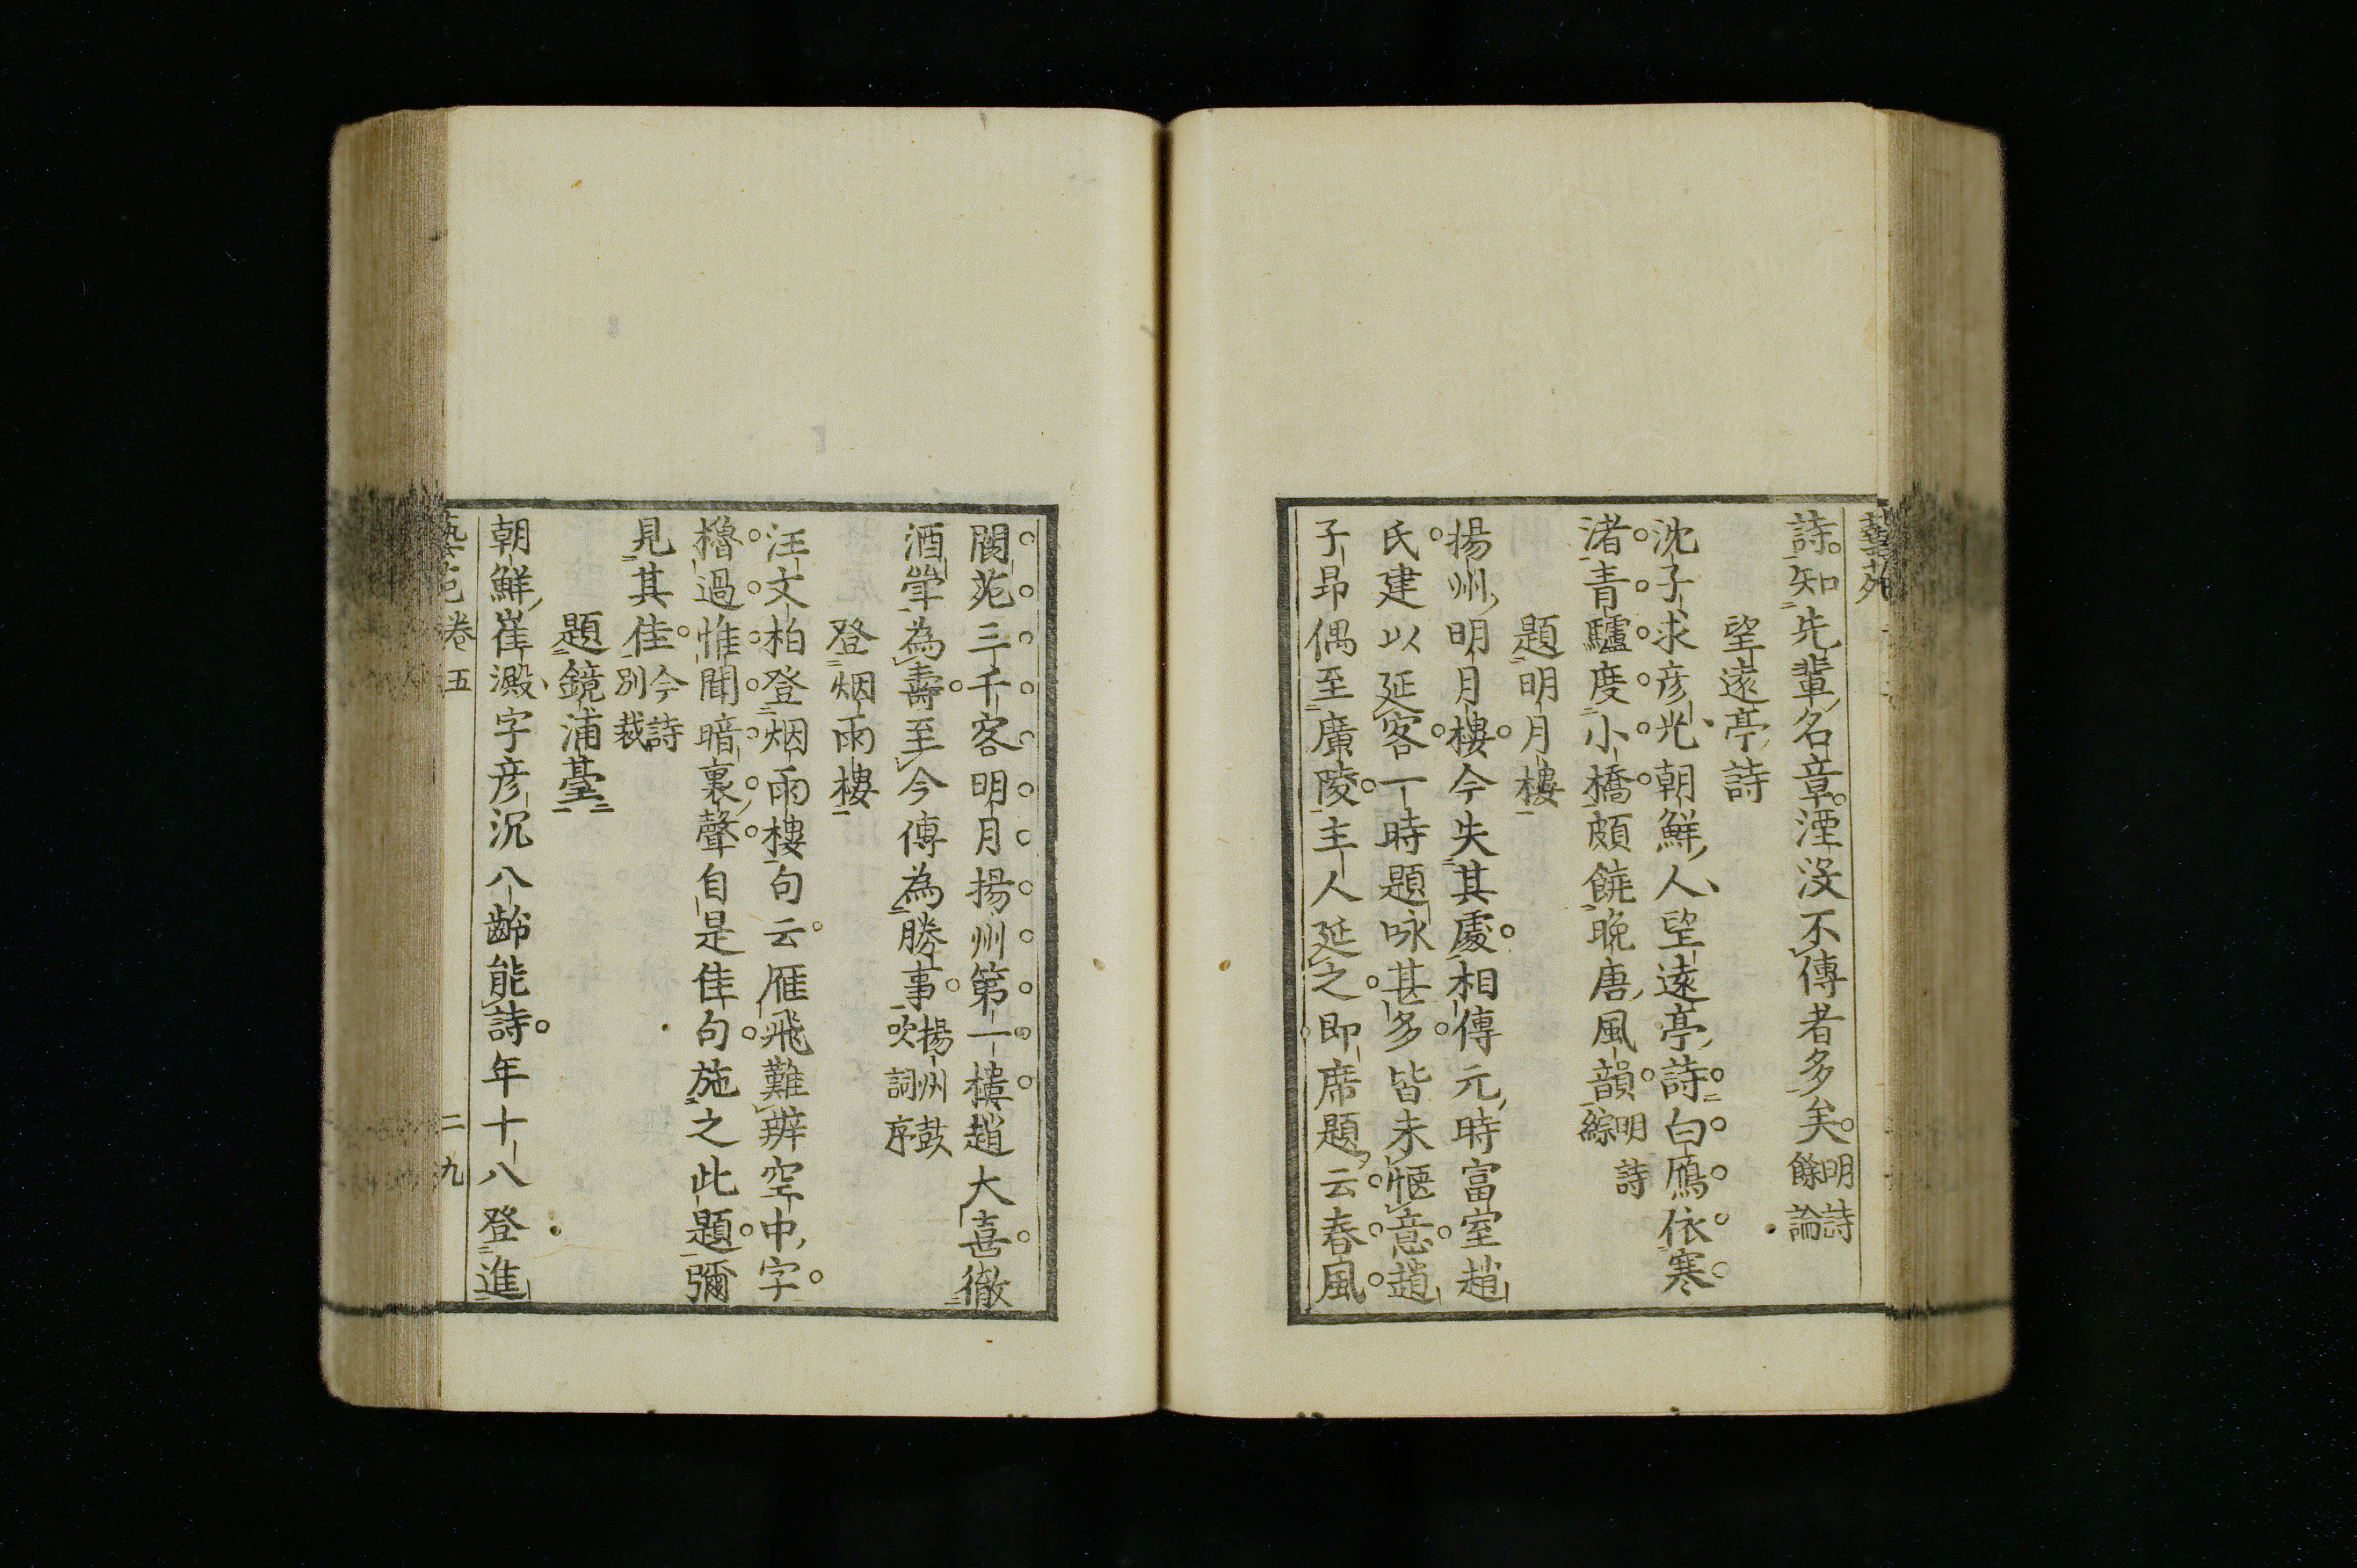 藝苑
詩知先輩名章湮没不傳者多矣明詩餘論
望遠亭詩
沈子求彦光朝鮮人望遠亭詩白鴈依寒
渚青驢度小橋頗饒晚唐風韻明詩綜
題明月樓
揚州明月樓今失其處相傳元時富室趙
氏建以延客一時題咏甚多皆未愜意趙
子昂偶至廣陵主人延之即席題云春風
閬苑三千客明月揚州第一樓趙大喜徹
酒斚為壽至今傳為勝事揚州鼓吹詞序
登烟雨樓
汪文柏登烟雨樓句云雁飛難辨空中字
櫓過惟聞暗裏聲自是佳句施之此題彌
見其佳今詩別裁
題鏡浦臺
朝鮮崔澱字彦沉八齡能詩年十八登進
藝苑卷五 二九